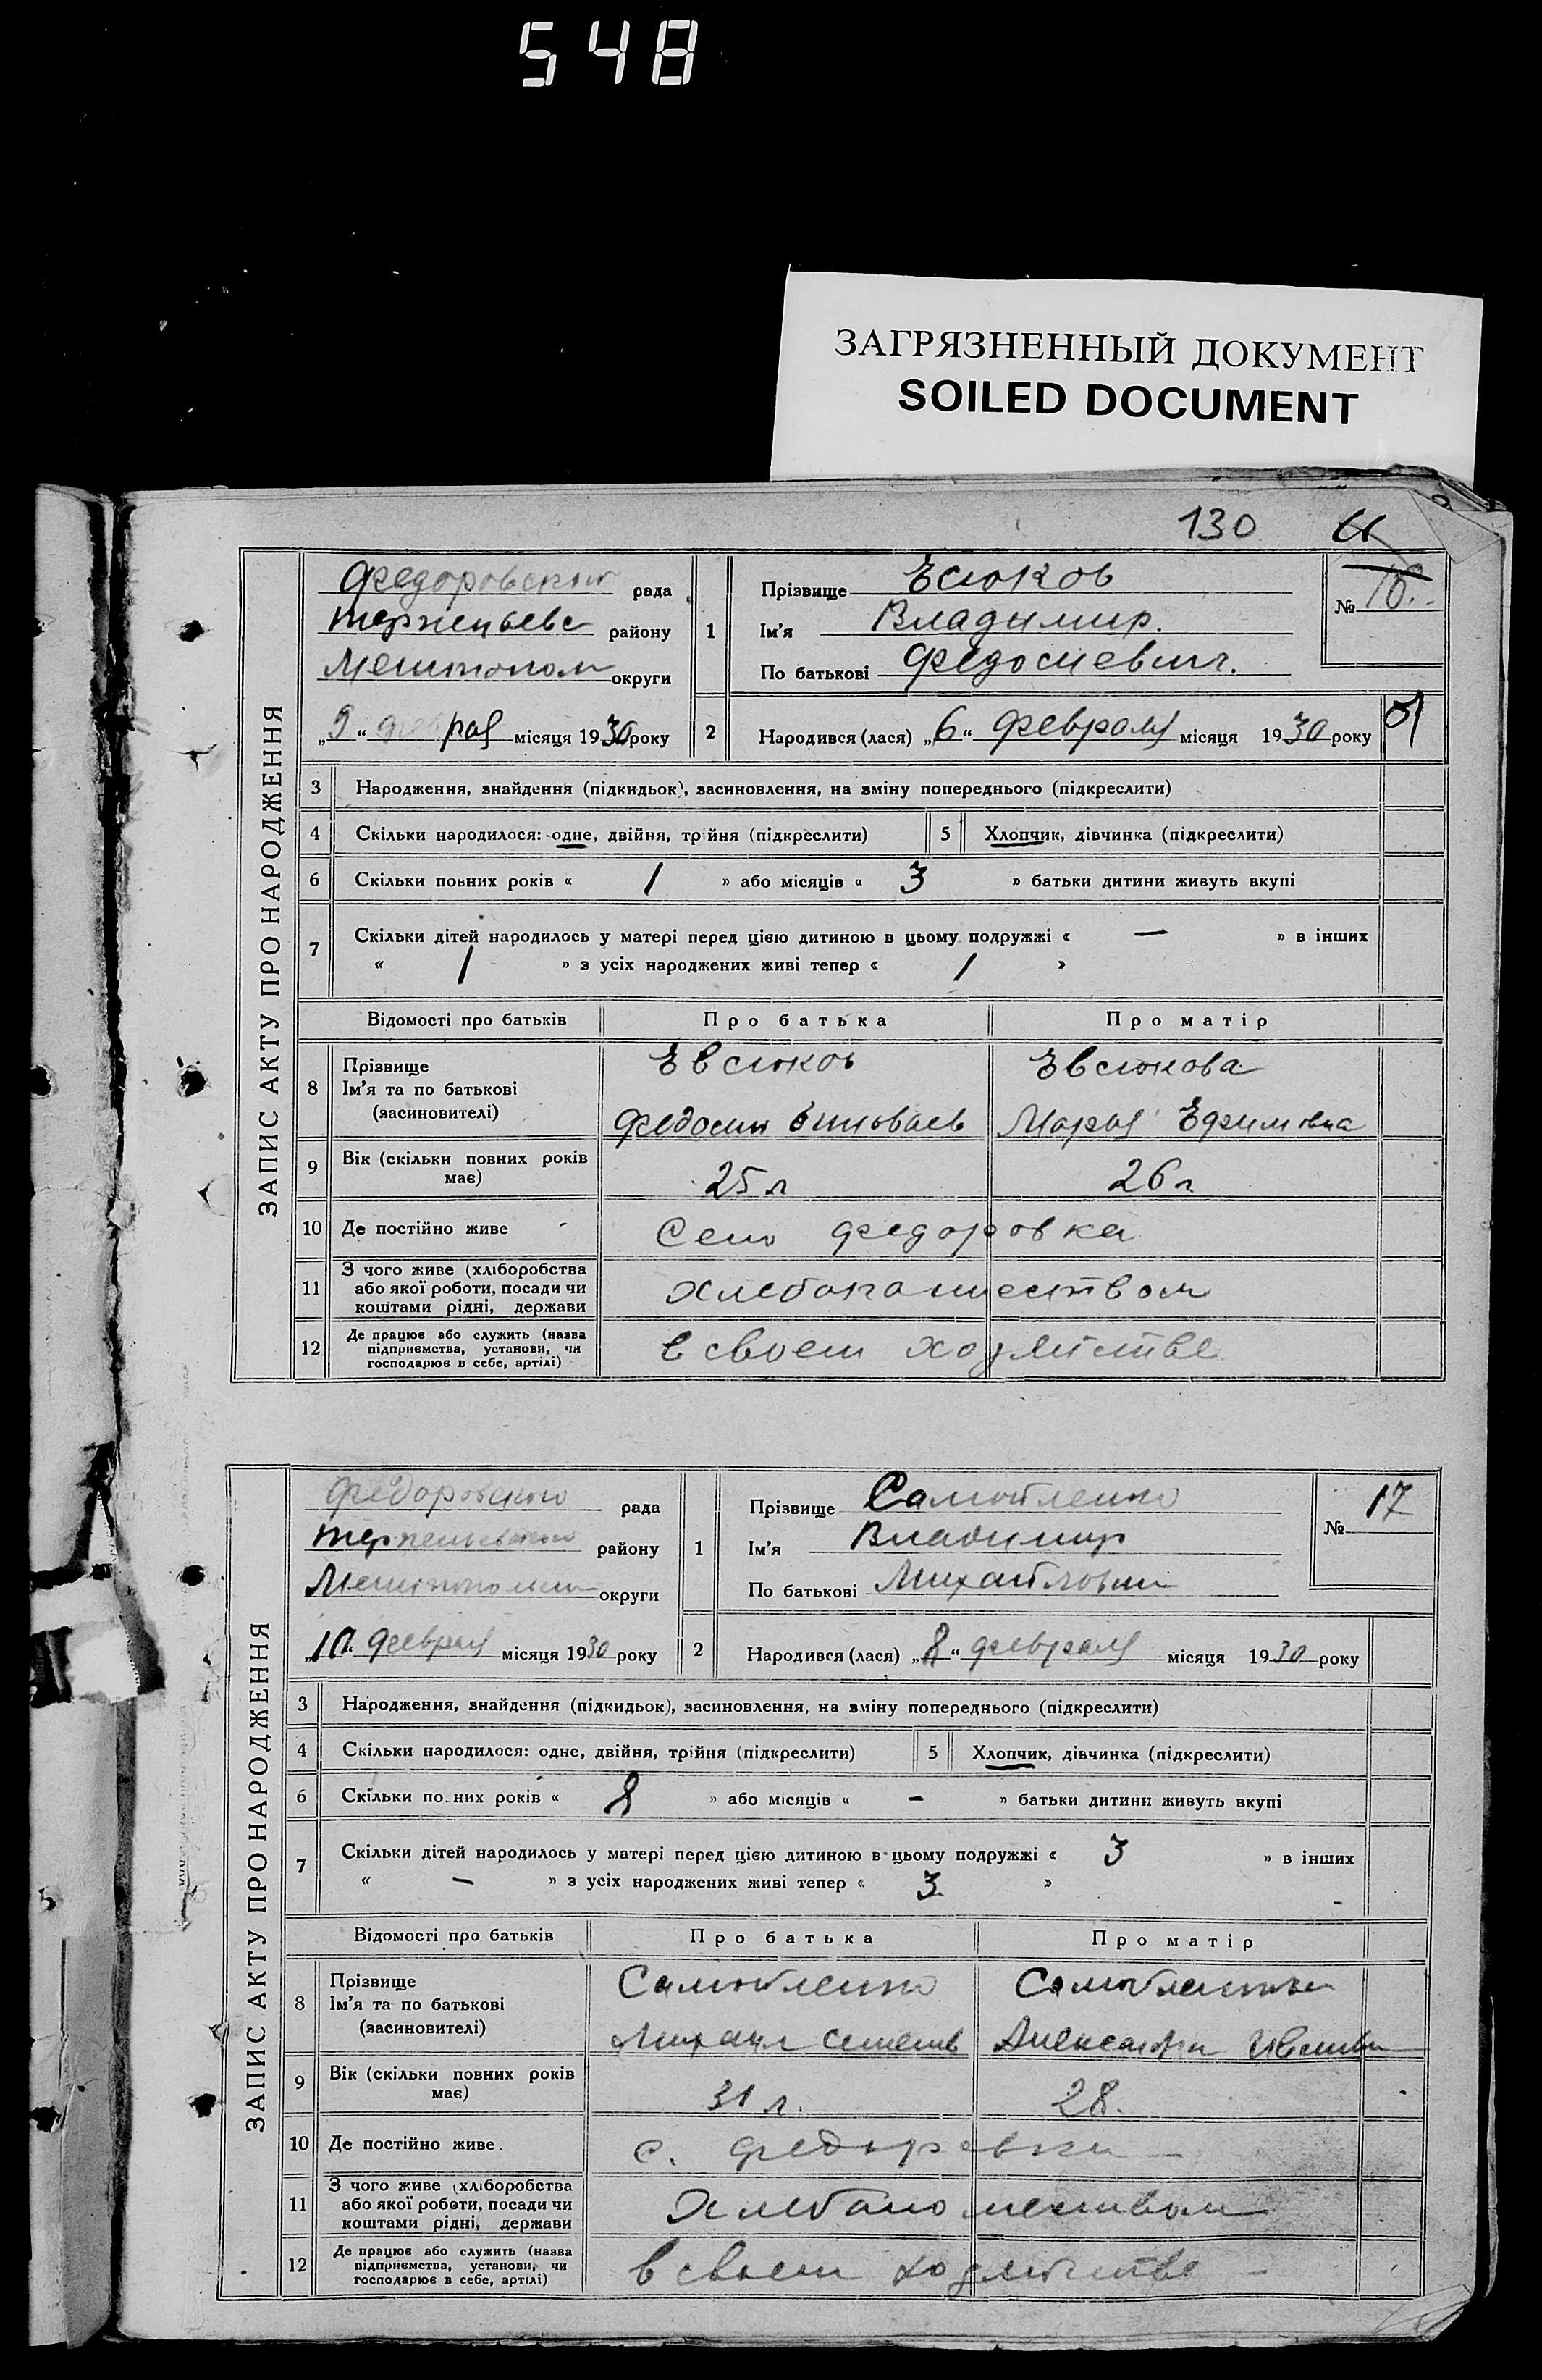 548
ЗАГРЯЗНЕННЫЙ ДОКУМЕНТ
SOILED DOCUMENT
130
ЗАПИС АКТУ ПРО НАРОДЖЕННЯ
Федоровского рада
района
Мелитопол округи
„9“ февраля місяця 1930 року
1 Прізвище Есюков
Ім'я Владимир.
По батькові Федосиевич.
№ 16.
2 Народився (лася) „6“ Февраля місяця 1930 року
3 Народження, знайдення (підкидьок), засиновлення, на зміну попереднього (підкреслити)
4 Скільки народилося: одне, двійня, трійня (підкреслити) 5 Хлопчик, дівчинка (підкреслити)
6 Скільки повних років « 1 » або місяців « 3 » батьки дитини живуть вкупі
7 Скільки дітей народилось у матері перед цією дитиною в цьому подружжі « — » в інших
« 1 » з усіх народжених живі тепер « 1 »
Відомості про батьків Про батька Про матір
8 Прізвище Евсюков Евсюкова
Ім'я та по батькові
(засиновителі) Федосий Мария Ефимовна
9 Вік (скільки повних років має) 25 л 26 л
10 Де постійно живе Село Федоровка
11 З чого живе (хліборобства
або якої роботи, посади чи
коштами рідні, держави хлебопашеством
12 Де працює або служить (назва
підприємства, установи, чи
господарює в себе, артілі) в своем хозяйстве
ЗАПИС АКТУ ПРО НАРОДЖЕННЯ
Федоровского рада
району
округи
„10“ февраля місяця 1930 року
1 Прізвище Самойленко
Ім'я Владимир
По батькові Михайлович
№ 17
2 Народився (лася) „8“ февраля місяця 1930 року
3 Народження, знайдення (підкидьок), засиновлення, на зміну попереднього (підкреслити)
4 Скільки народилося: одне, двійня, трійня (підкреслити) 5 Хлопчик, дівчинка (підкреслити)
6 Скільки повних років « 8 » або місяців « - » батьки дитини живуть вкупі
7 Скільки дітей народилось у матері перед цією дитиною в цьому подружжі « 3 » в інших
« — » з усіх народжених живі тепер « 3. »
Відомості про батьків Про батька Про матір
8 Прізвище Самойленко
Ім'я та по батькові
(засиновителі) Михаил Семенов Александра
9 Вік (скільки повних років має) 31 л. 28.
10 Де постійно живе. с. Федоровка
11 З чого живе (хліборобства
або якої роботи, посади чи
коштами рідні, держави хлебопашеством
12 Де працює або служить (назва
підприємства, установи, чи
господарює в себе, артілі) в своем хозяйстве